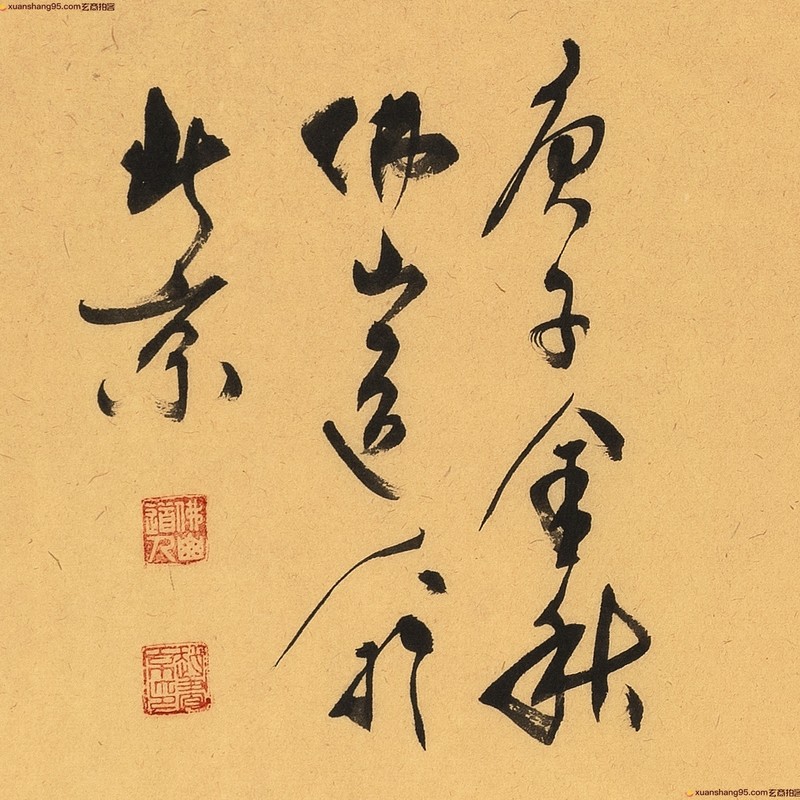 xuanshang95.com
庚子金秋
佛山道翁
北京
佛山
道人
xuanshang95.com